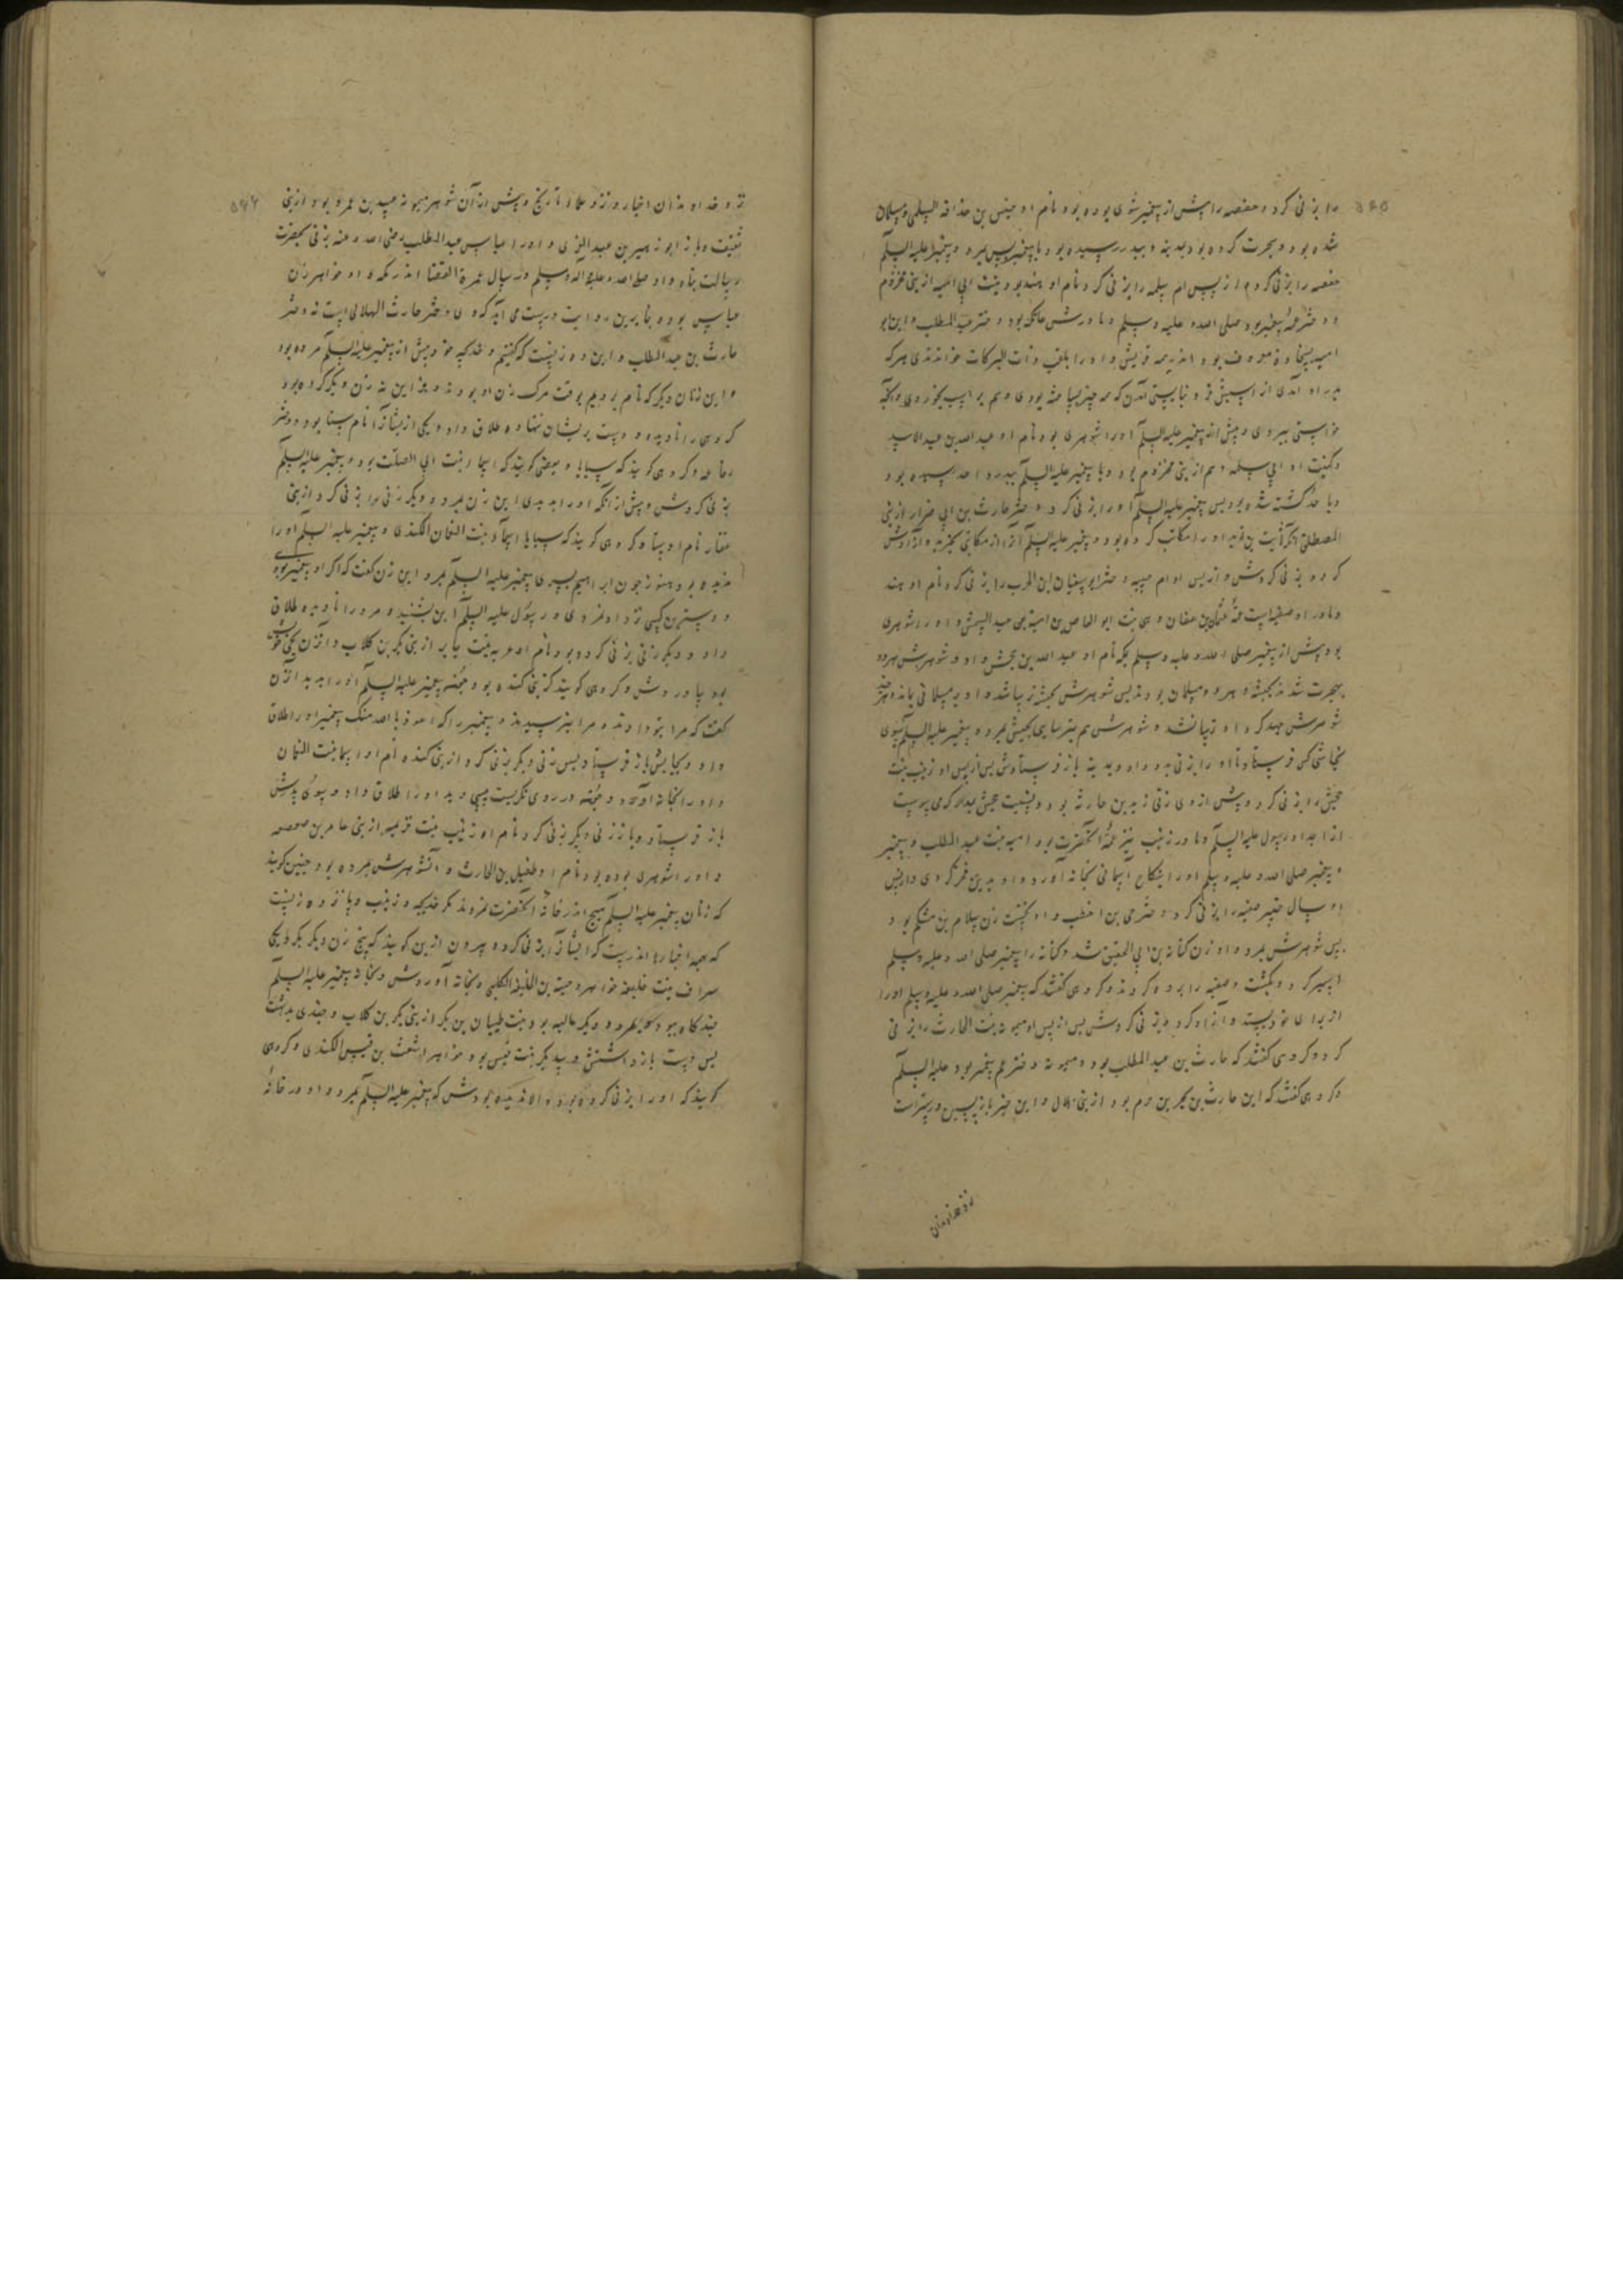 را بزنی کرد و حفصه را پیش از پیغمبر شوی بوده بود نام او خنیس بن حذافه السلمی و مسلمان
شده بود و هجرت کرده بود بمدینه و ببدر رسیده بود با پیغمبر پس بمرد و پیغمبر علیه السلم
حفصه را بزنی کرد و از پس ام سلمه را بزنی کرد نام او هند بود بنت ابی امیه از بنی مخزوم
و دختر عمه پیغمبر بود صلی الله علیه وسلم و مادرش عاتکه بود دختر عبد المطلب و این ابو
امیه بسخاوة معروف بود اندر همه قریش و او را بلقب ذات البرکات خواندندی هر که
خواستی ببردی و پیش از پیغمبر علیه السلم او را شوهری بود نام او عبد الله بن عبد الاسد
و کنیت او ابی سلمه و هم از بنی مخزوم بود و با پیغمبر علیه السلم ببدر و احد رسیده بود
و باحد کشته شده بود پس پیغمبر علیه السلم او را بزنی کرد و دختر حارث بن ابی ضرار از بنی
المصطلق که ثابت بن قیس او را مکاتب کرده بود و پیغمبر علیه السلم او را از مکاتبی بخرید و آزادش
کرد و بزنی کردش و از پس او ام حبیبه دختر ابو سفیان ابن الحرب را بزنی کرد نام او هند
و مادر او صفیه است عمه عثمان بن عفان وهی بنت ابو العاص بن امیة بن عبد الشمس و او را شوهری
بود پیش از پیغمبر صلی الله علیه وسلم بمکه نام او عبد الله بن جحش و او و شوهرش هر دو
بهجرت شدند بحبشه و هر دو مسلمان بودند پس شوهرش بحبشه ترسا شد و او بر مسلمانی بماند و هر چند
شوهرش جهد کرد او ترسا نشد و شوهرش هم بترسایی بحبش بمرد و پیغمبر علیه السلم بسوی
نجاشی کس فرستاد تا او را بزنی بدو داد و بمدینه باز فرستادش پس از پس او زینب بنت
جحش را بزنی کرد و پیش از وی زن زید بن حارثه بود و نسبت جحش بدان که می پیوست
از اجداد رسول علیه السلم و مادر زینب نیز عمه آنحضرت بود امیمه بنت عبد المطلب و پیغمبر
و پیغمبر صلی الله علیه وسلم او را بنکاح آسمانی بخانه آورد و او بدین فخر کردی و از پس
او بسال خیبر صفیه را بزنی کرد دختر حیی بن اخطب و او نخست زن سلام بن مشکم بود و
پس شوهرش بمرد و او زن کنانه بن ابی الحقیق شد و کنانه را پیغمبر صلی الله علیه وسلم
اسیر کرد و بکشت و صفیه را برده کردند و کروهی کفتند که پیغمبر صلی الله علیه وسلم او را
از برای خود پسند و آزاد کرد و بزنی کردش پس از پس او میمونه بنت الحارث را بزنی
کرد و کروهی کفتند که حارث بن عبد المطلب بود و میمونه دختر عم پیغمبر بود علیه السلم
و کروهی کفتند که این حارث بن بجیر بن حزم بود از بنی هلال و این خبر باز پسین درسترست
نزد خداوندان
نزد خداوندان اخبار و نزد علماء تاریخ و پیش از آن شوهر میمونه عمیر بن عمرو بود از بنی
ثقیف و باز ابو زهیر بن عبد العزی و او را عباس عبد المطلب رضی الله عنه بزنی بحضرت
رسالت پناه داد صلی الله علیه وآله وسلم در سال عمرة القضا اندر مکه و او خواهر زن
عباس بوده بنابرین روایت درست می آید که وی دختر حارث الهلالی است نه دختر
حارث بن عبد المطلب و این ده زنست که کفتیم و خدیجه خود پیش از پیغمبر علیه السلم مرده بود
و این زنان دیکر که نام بردیم بوقت مرک زن او بودند و بجز این نه زن دیکر کرده بود
کروهی را نادیده و دست بریشان ننهاده طلاق داد و یکی ازیشان را نام سبا بود دختر
رفاعه و کروهی کویند که سبایا و بعضی کویند که اسماء بنت ابی الصلت بود و پیغمبر علیه السلم
بزنی کردش و پیش از آنکه او را بدیدی این زن بمرد و دیکر زنی را بزنی کرد از بنی
غفار نام او سبا و کروهی کویند که سبایا اسماء بنت النعمان الکندی و پیغمبر علیه السلم او را
ندیده بود هنوز چون ابراهیم پسر پیغمبر علیه السلم بمرد این زن کفت که اکر او پیغمبر بودی
دوسترین کسی نزد او نمردی و رسول علیه السلم این بشنید و مر او را نادیده طلاق
داد و دیکر زنی بزنی کرده بود نام او عربه بنت جابر از بنی بکر بن کلاب و آن زن
بیاوردش و کروهی کویند کز بنی کنده بود و چون پیغمبر علیه السلم او را بدید آن زن
کفت که مرا بتو دادند و مرا نپرسیدند و پیغمبر را که اعوذ بالله منک پیغمبر او را طلاق
داد و بجایش باز فرستاد پس زنی دیکر بزنی کرد از بنی کنده نام او اسما بنت النعمان
و او را بخانه آورد و چون در روی نکریست پیسی دید او را طلاق داد و بسوی پدرش
باز فرستاد و باز زنی دیکر بزنی کرد نام او زینب بنت خزیمه از بنی عامر بن صعصعه
و او را شوهری بوده بود نام او طفیل بن الحارث و آن شوهرش بمرده بود و چنین کویند
که زنان پیغمبر علیه السلم هیچ اندر خانه آنحضرت نمردند مکر خدیجه و زینب و پانزده زنست
که بهمه اخبارها اندرست که ایشان را بزنی کرد و بیرون ازین کویند که پنج زن دیکر بکرد یکی
سراف بنت خلیفه خواهر دحیة بن الخلیفة الکلبی و بخانه آوردش و بخانه پیغمبر علیه السلم
چند کاه ببود و بمرد و دیکر عالیه بود بنت ظبیان بن بکر از بنی بکر بن کلاب و چندی بداشت
پس دست باز داشتش و سدیکر بنت قیس بود خواهر اشعث بن قیس الکندی و کروهی
کویند که او را بزنی کرده بود و لا ندیده بودش که پیغمبر علیه السلم بمرد و او در خانه